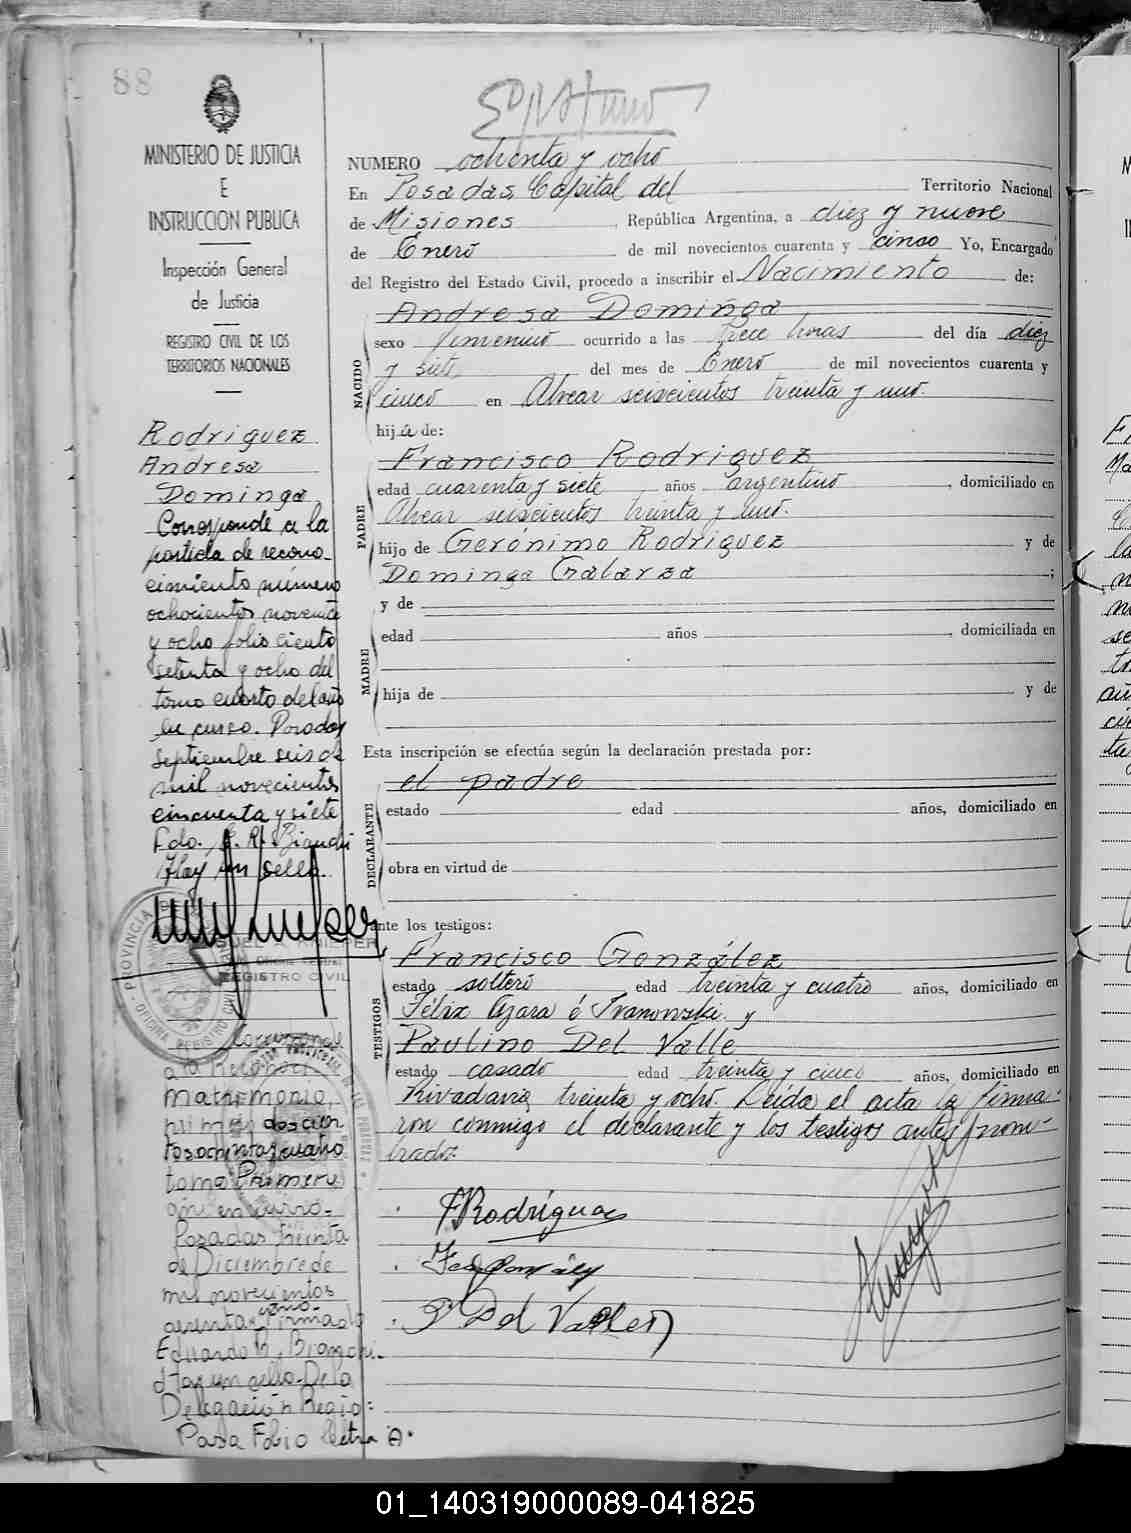 88
MINISTERIO DE JUSTICIA
E
INSTRUCCION PUBLICA
Inspección General
de Justicia
REGISTRO CIVIL DE LOS
TERRITORIOS NACIONALES
Rodriguez
Andresa
Dominga
Corresponde a la
partida de recono-
cimiento número
ochocientos noventa
y ocho folio ciento
setenta y ocho del
tomo cuarto del año
en curso. Posadas
septiembre seis de
mil novecientos
cincuenta y siete
Fdo. E. R. Bianchi
Hay un sello.
REGISTRO CIVIL
PROVINCIA
Matrimonio
doscien
tos ochenta y cuatro
tomo Primero
año en curso-
Posadas treinta
de Diciembre de
mil novecientos
Firmado
Eduardo R.
Hay un sello-De la
Delegación Regio:
Pasa Folio letra A.
NUMERO ochenta y ocho
En Posadas, Capital del Territorio Nacional
de Misiones, República Argentina, a diez y nueve
de Enero de mil novecientos cuarenta y cinco Yo, Encargado
del Registro del Estado Civil, procedo a inscribir el Nacimiento de:
NACIDO
Andresa Dominga
sexo femenino ocurrido a las trece horas del día diez
y siete del mes de Enero de mil novecientos cuarenta y
cinco en Alvear seiscientos treinta y uno.
hija de:
PADRE
Francisco Rodriguez
edad cuarenta y siete años argentino, domiciliado en
Alvear seiscientos treinta y uno.
hijo de Gerónimo Rodriguez y de
Dominga Galarza;
MADRE
y de
edad años, domiciliada en
hija de y de
Esta inscripción se efectúa según la declaración prestada por:
DECLARANTE
el padre
estado edad años, domiciliado en
obra en virtud de
ante los testigos:
TESTIGOS
Francisco González
estado soltero edad treinta y cuatro años, domiciliado en
Félix Azara é Ivanowski y
Paulino Del Valle
estado casado edad treinta y cinco años, domiciliado en
Rivadavia treinta y ocho. Leída el acta la firma-
ron conmigo el declarante y los testigos antes nom-
brados.
F Rodríguez
P Del Valle
01_140319000089-041825